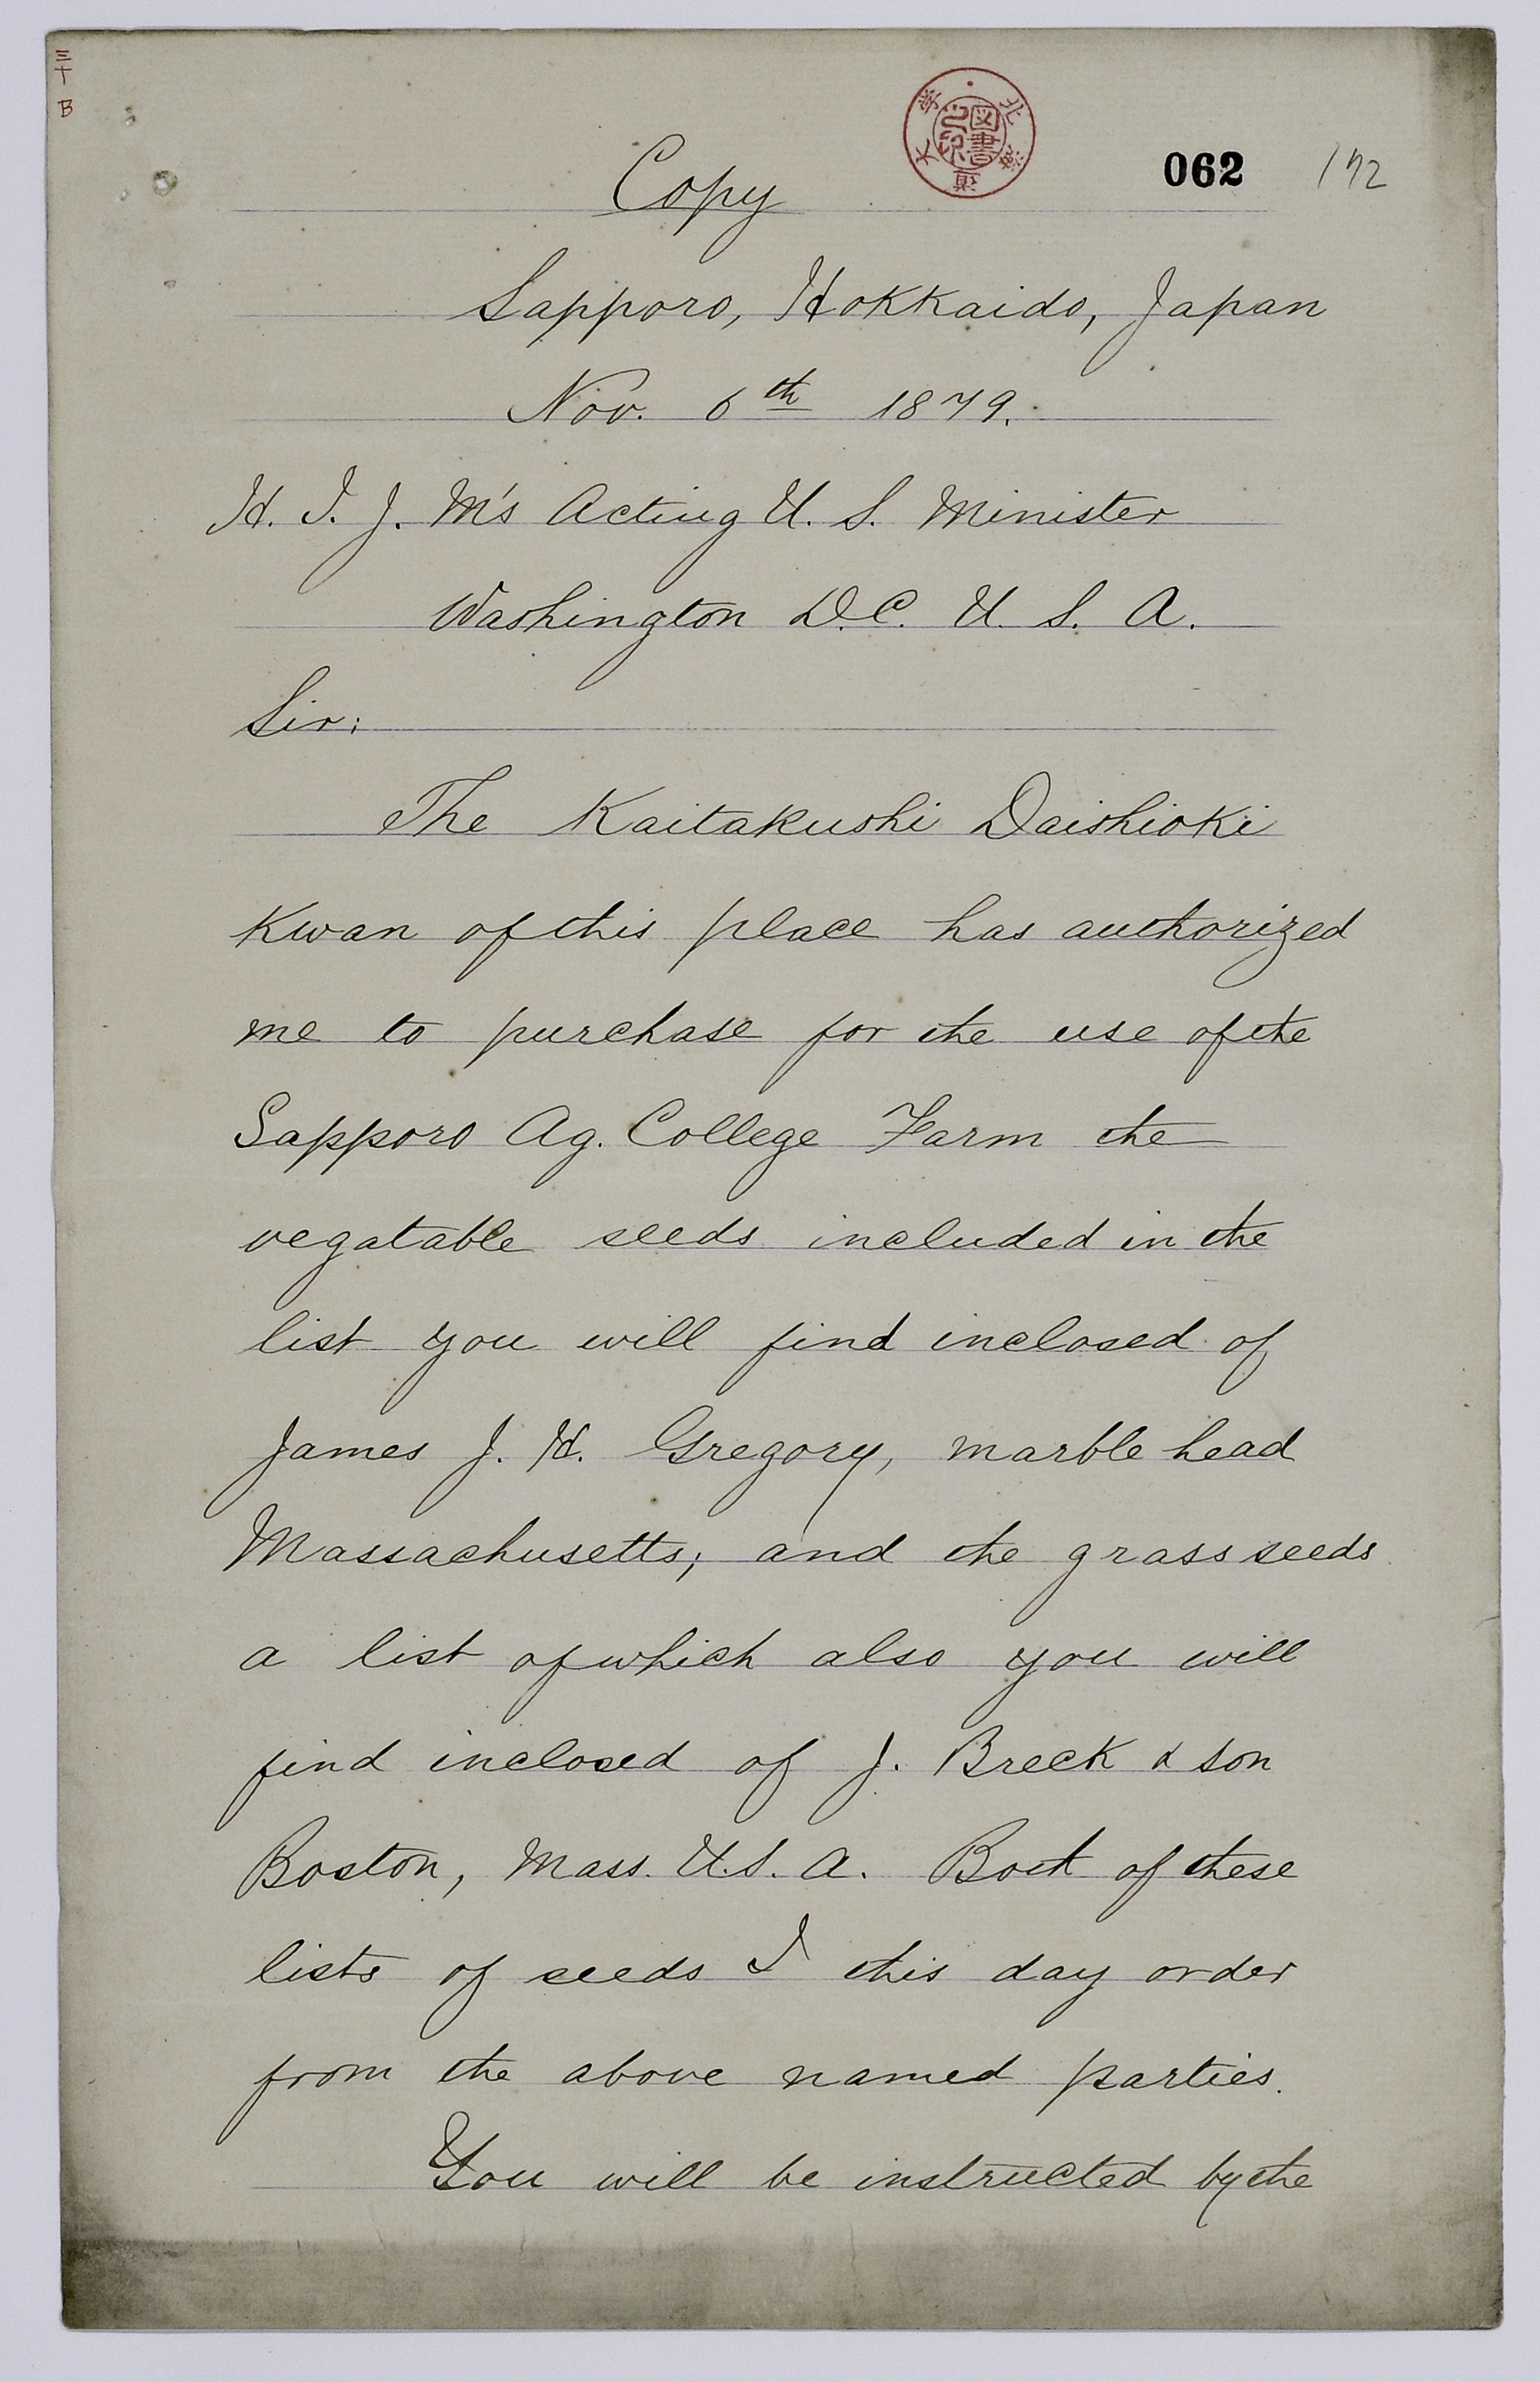 三十
B
北海道大學
図書之印
062 172
Copy
Sapporo, Hokkaido, Japan
Nov. 6th 1879.
H. I. J. M's Acting U. S. Minister
Washington D.C. U. S. A.
Sir:
The Kaitakushi Daishioki
Kwan of this place has authorized
me to purchase for the use of the
Sapporo Ag. College Farm the
vegatable seeds included in the
list you will find inclosed of
James J. H. Gregory, marble head
Massachusetts; and the grass seeds
a list of which also you will
find inclosed of J. Breck & son
Boston, Mass. U.S. A. Boct of these
lists of seeds I this day order
from the above named parties.
You will be instructed by the